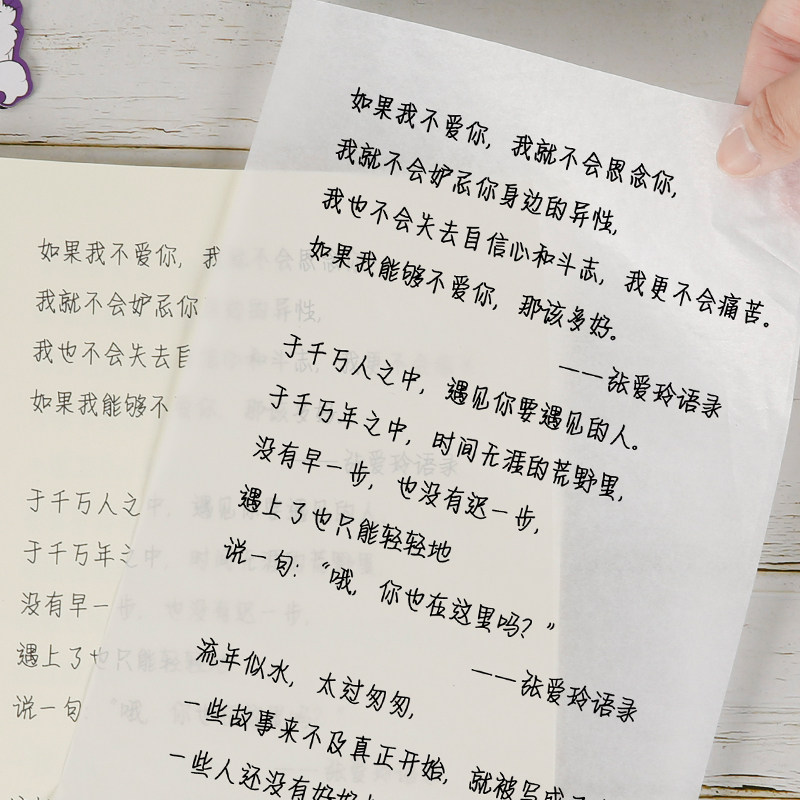 如果我不爱你，我就不会思念你，
我就不会妒忌你身边的异性，
我也不会失去自信心和斗志，我更不会痛苦。
如果我能够不爱你，那该多好。
——张爱玲语录
于千万人之中，遇见你要遇见的人。
于千万年之中，时间无涯的荒野里，
没有早一步，也没有迟一步，
遇上了也只能轻轻地
说一句：“哦，你也在这里吗？”
——张爱玲语录
流年似水，太过匆匆，
一些故事来不及真正开始，就被写成了
一些人还没有好好
如果我不爱你，我
我就不会妒忌你
我也不会失去自
如果我能够不
于千万人之中，遇见你要遇见的人
于千万年之中，时间无涯的荒野里
没有早一步，也没有迟一步，
遇上了也只能轻轻
说一句：“哦，你